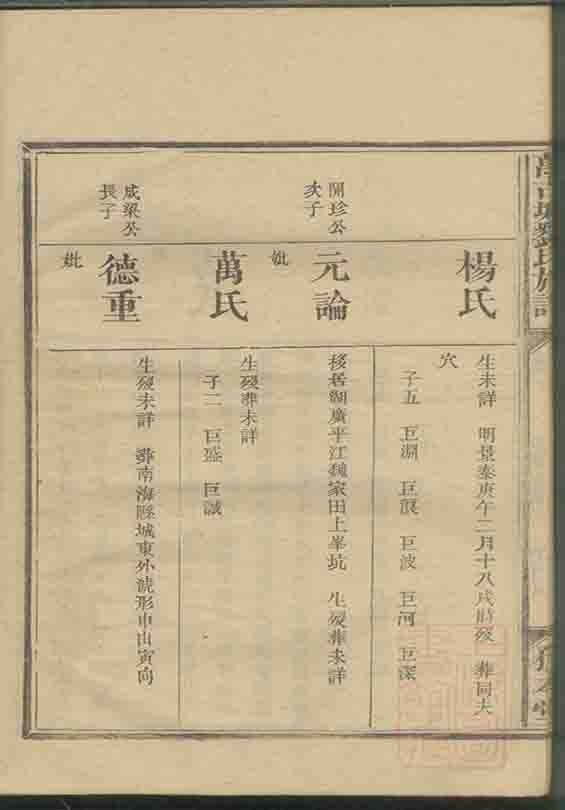 劉氏族譜
楊氏
生未詳 明景泰庚午二月十八戌時歿 葬同夫
穴
子五 巨淵 巨 巨波 巨河 巨深
開珍公
次子
元論
移居湖廣平江魏家田上峯坑 生歿葬未詳
妣
萬氏
生歿葬未詳
子二 巨盛 巨誠
成梁公
長子
德重
生歿未詳 葬南海縣城東外虎形申山寅向
妣